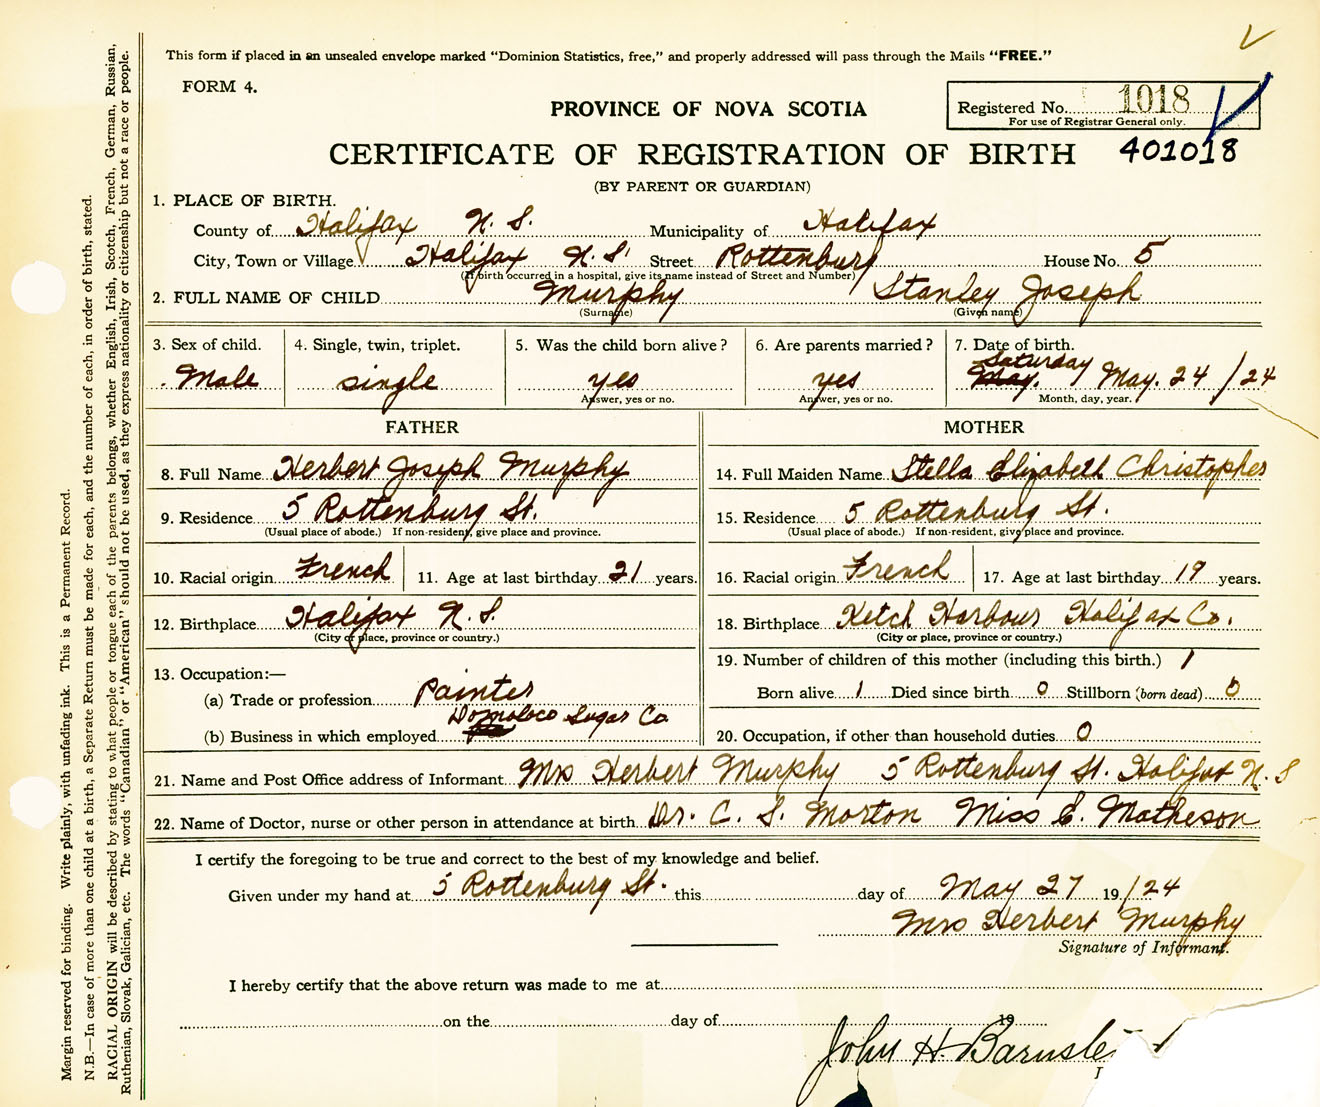 This form if placed in an unsealed envelope marked “Dominion Statistics, free,” and properly addressed will pass through the Mails “FREE.”
FORM 4.
Registered No. 1018
For use of Registrar General only.
PROVINCE OF NOVA SCOTIA
CERTIFICATE OF REGISTRATION OF BIRTH 401018
(BY PARENT OR GUARDIAN)
1. PLACE OF BIRTH.
County of Halifax N. S. Municipality of Halifax
City, Town or Village Halifax N. S. Street Rottenburg House No. 5
(If birth occurred in a hospital, give its name instead of Street and Number)
2. FULL NAME OF CHILD Murphy Stanley Joseph
(Surname) (Given name)
3. Sex of child. 4. Single, twin, triplet. 5. Was the child born alive? 6. Are parents married? 7. Date of birth.
Male single yes yes Saturday May. May. 24 /24
Answer, yes or no. Answer, yes or no. Month, day, year.
FATHER MOTHER
8. Full Name Herbert Joseph Murphy 14. Full Maiden Name Stella Elizabeth Christopher
9. Residence 5 Rottenburg St. 15. Residence 5 Rottenburg St.
(Usual place of abode.) If non-resident, give place and province. (Usual place of abode.) If non-resident, give place and province.
10. Racial origin French 11. Age at last birthday 21 years. 16. Racial origin French 17. Age at last birthday 19 years.
12. Birthplace Halifax N. S. 18. Birthplace Ketch Harbour Halifax Co.
(City or place, province or country.) (City or place, province or country.)
13. Occupation:— 19. Number of children of this mother (including this birth.) 1
(a) Trade or profession Painter Born alive 1 Died since birth 0 Stillborn (born dead) 0
(b) Business in which employed Sugar Co 20. Occupation, if other than household duties 0
21. Name and Post Office address of Informant Mrs Herbert Murphy 5 Rottenburg St. Halifax N. S
22. Name of Doctor, nurse or other person in attendance at birth Dr. C. S. Morton Miss E. Matheson
I certify the foregoing to be true and correct to the best of my knowledge and belief.
Given under my hand at 5 Rottenburg St. this day of May 27 19/24
Mrs Herbert Murphy
Signature of Informant.
I hereby certify that the above return was made to me at
on the day of 19
John H. Barnste
Margin reserved for binding. Write plainly, with unfading ink. This is a Permanent Record.
N.B.—In case of more than one child at a birth, a Separate Return must be made for each, and the number of each, in order of birth, stated.
RACIAL ORIGIN will be described by stating to what people or tongue each of the parents belongs, whether English, Irish, Scotch, French, German, Russian,
Ruthenian, Slovak, Galician, etc. The words “Canadian” or “American” should not be used, as they express nationality or citizenship but not a race or people.